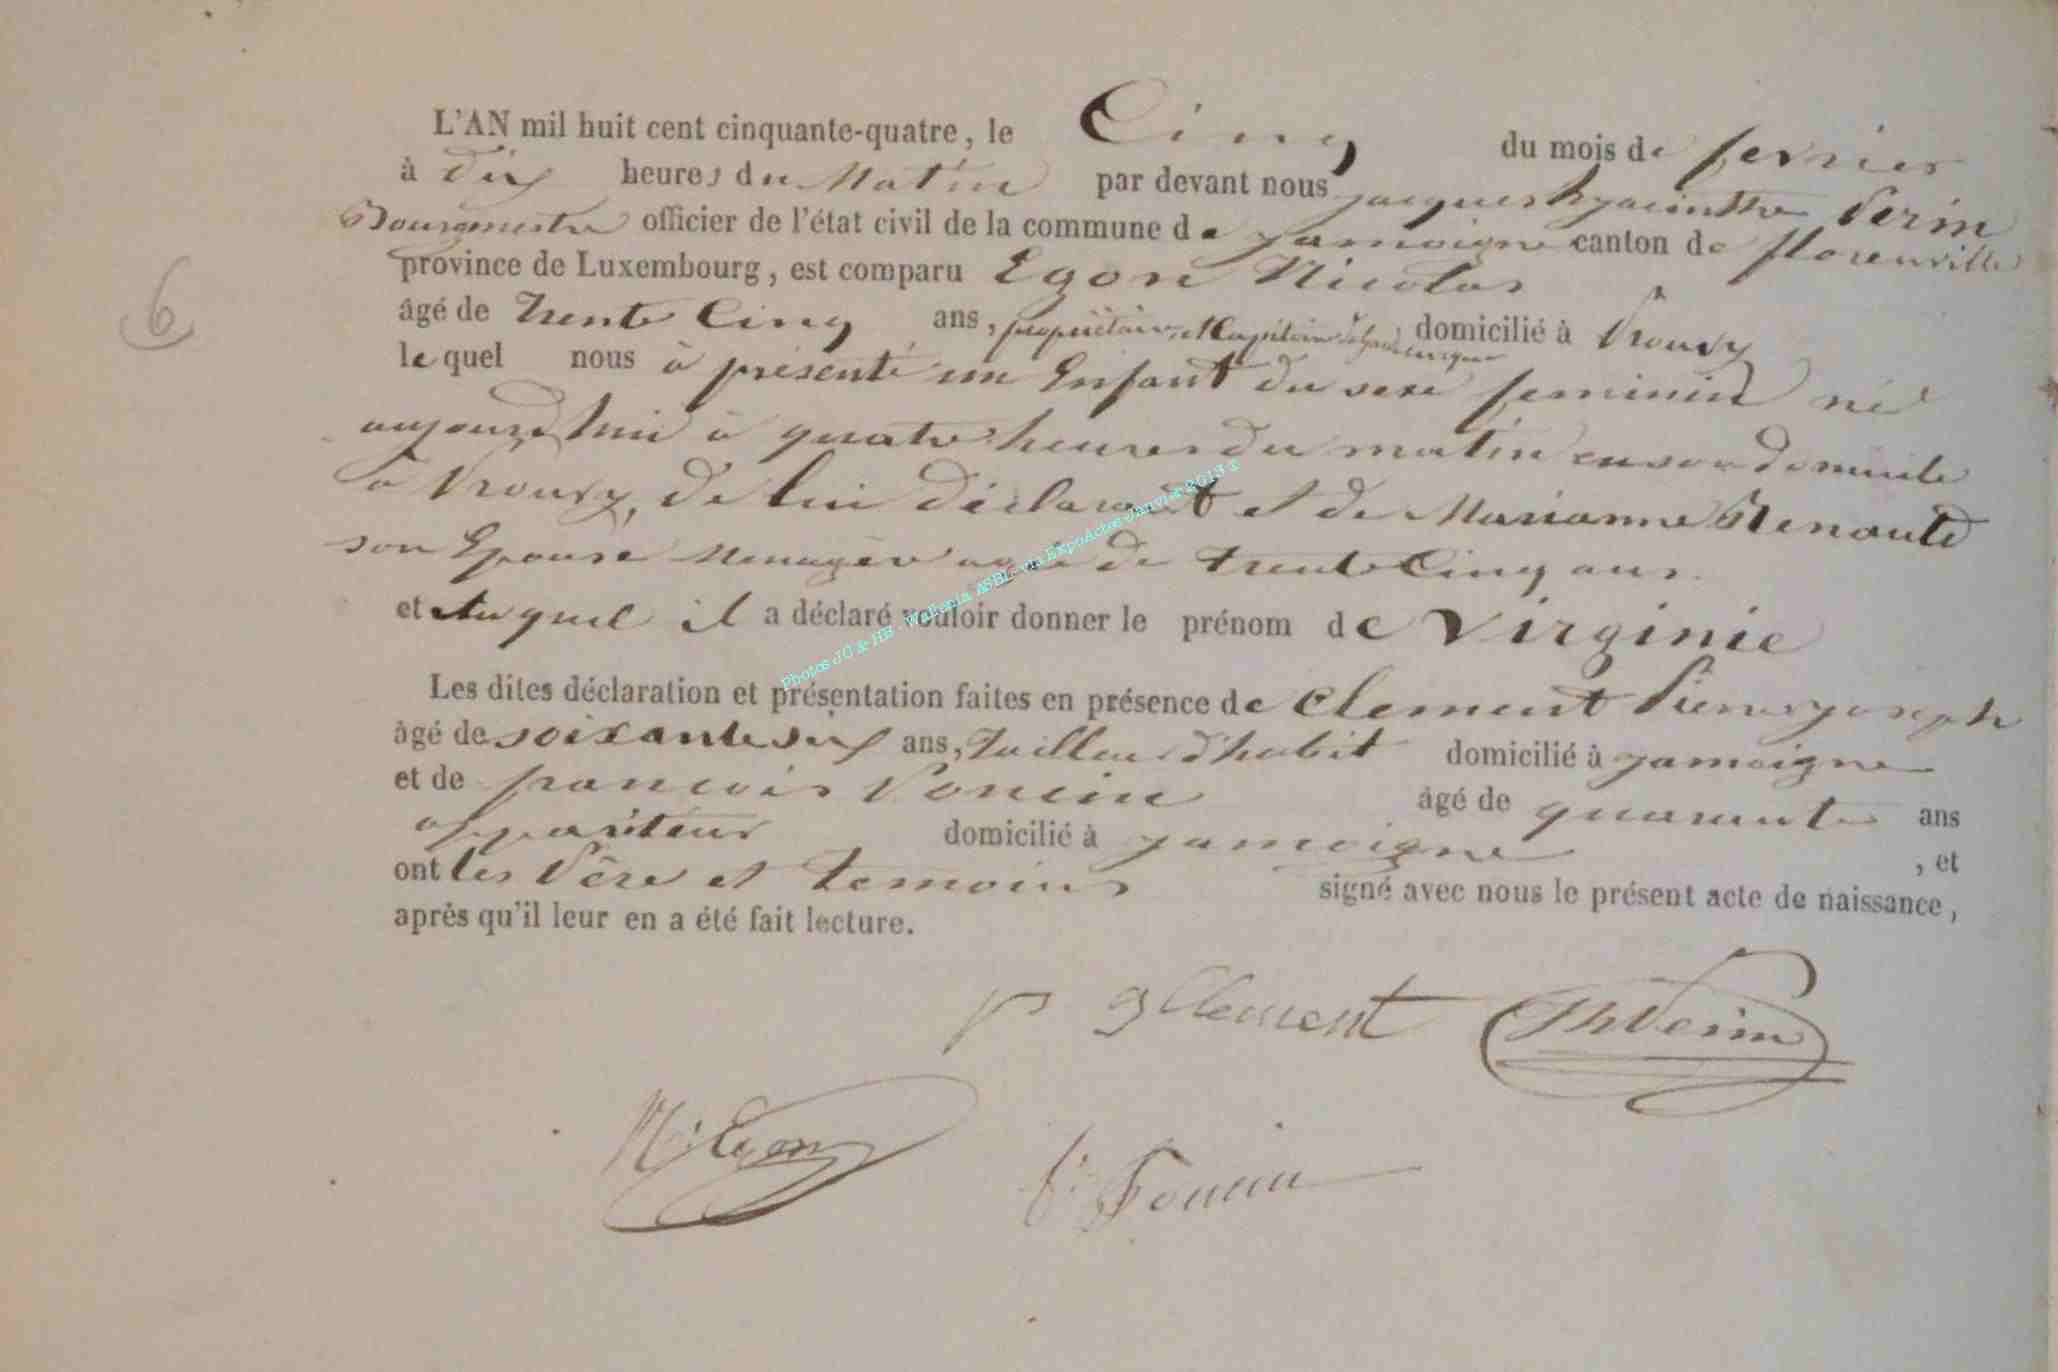 L'AN mil huit cent cinquante-quatre, le Cinq du mois de fevrier
à dix heures du Matin par devant nous jacques hyacinthe Perin
Bourgmestre officier de l'état civil de la commune de jamoigne canton de florenville
province de Luxembourg, est comparu Egon Nicolas
6
âgé de Trente Cinq ans, propriétaire, et Capitaine domicilié à Prouvy
lequel nous à présenté un Enfant du sexe feminin né
aujourd'hui à quatre heures du matin en son domicile
à Prouvy, de lui déclarant et de Marianne Renauld
son Epouse Menagère agée de trente Cinq ans.
et auquel il a déclaré vouloir donner le prénom de Virginie
Photos JC & HB. Wallonia ASBL via ExpoActes Janvier 2013 ©
Les dites déclaration et présentation faites en présence de Clement Pierre joseph
âgé de soixante six ans, Tailleur d'habit domicilié à jamoigne
et de francois Poncin âgé de quarante ans
appariteur domicilié à jamoigne , et
ont les Père et temoins signé avec nous le présent acte de naissance,
après qu'il leur en a été fait lecture.
p j Clement JhPerin
N. Egon f. Poncin